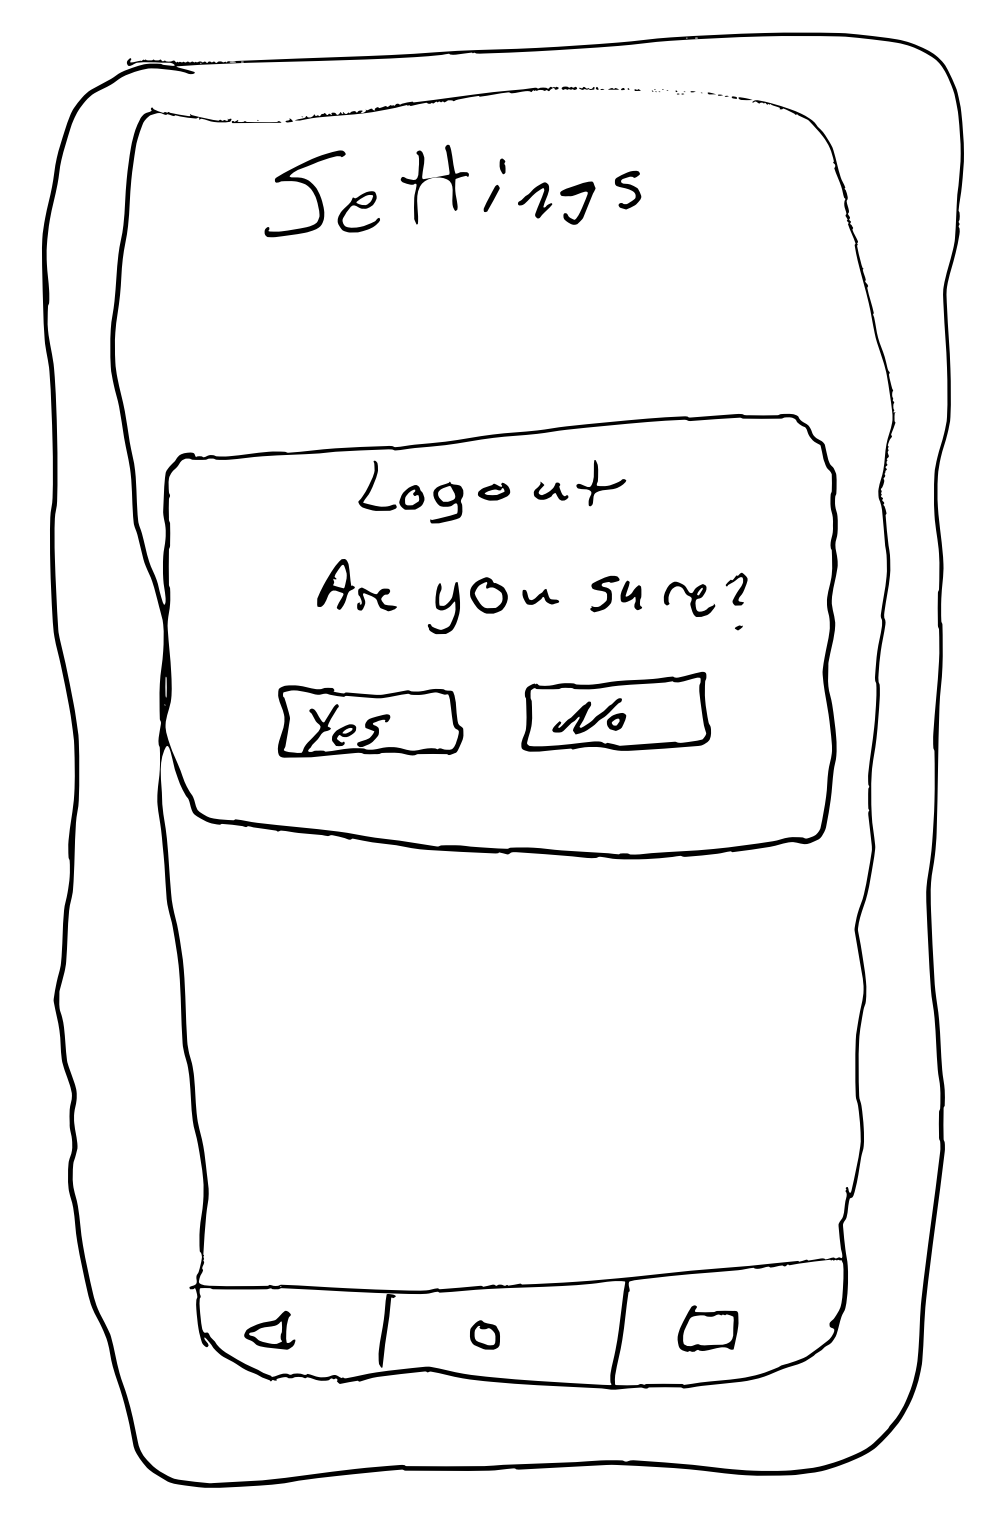 Settings
Logout
Are you sure?
Yes No